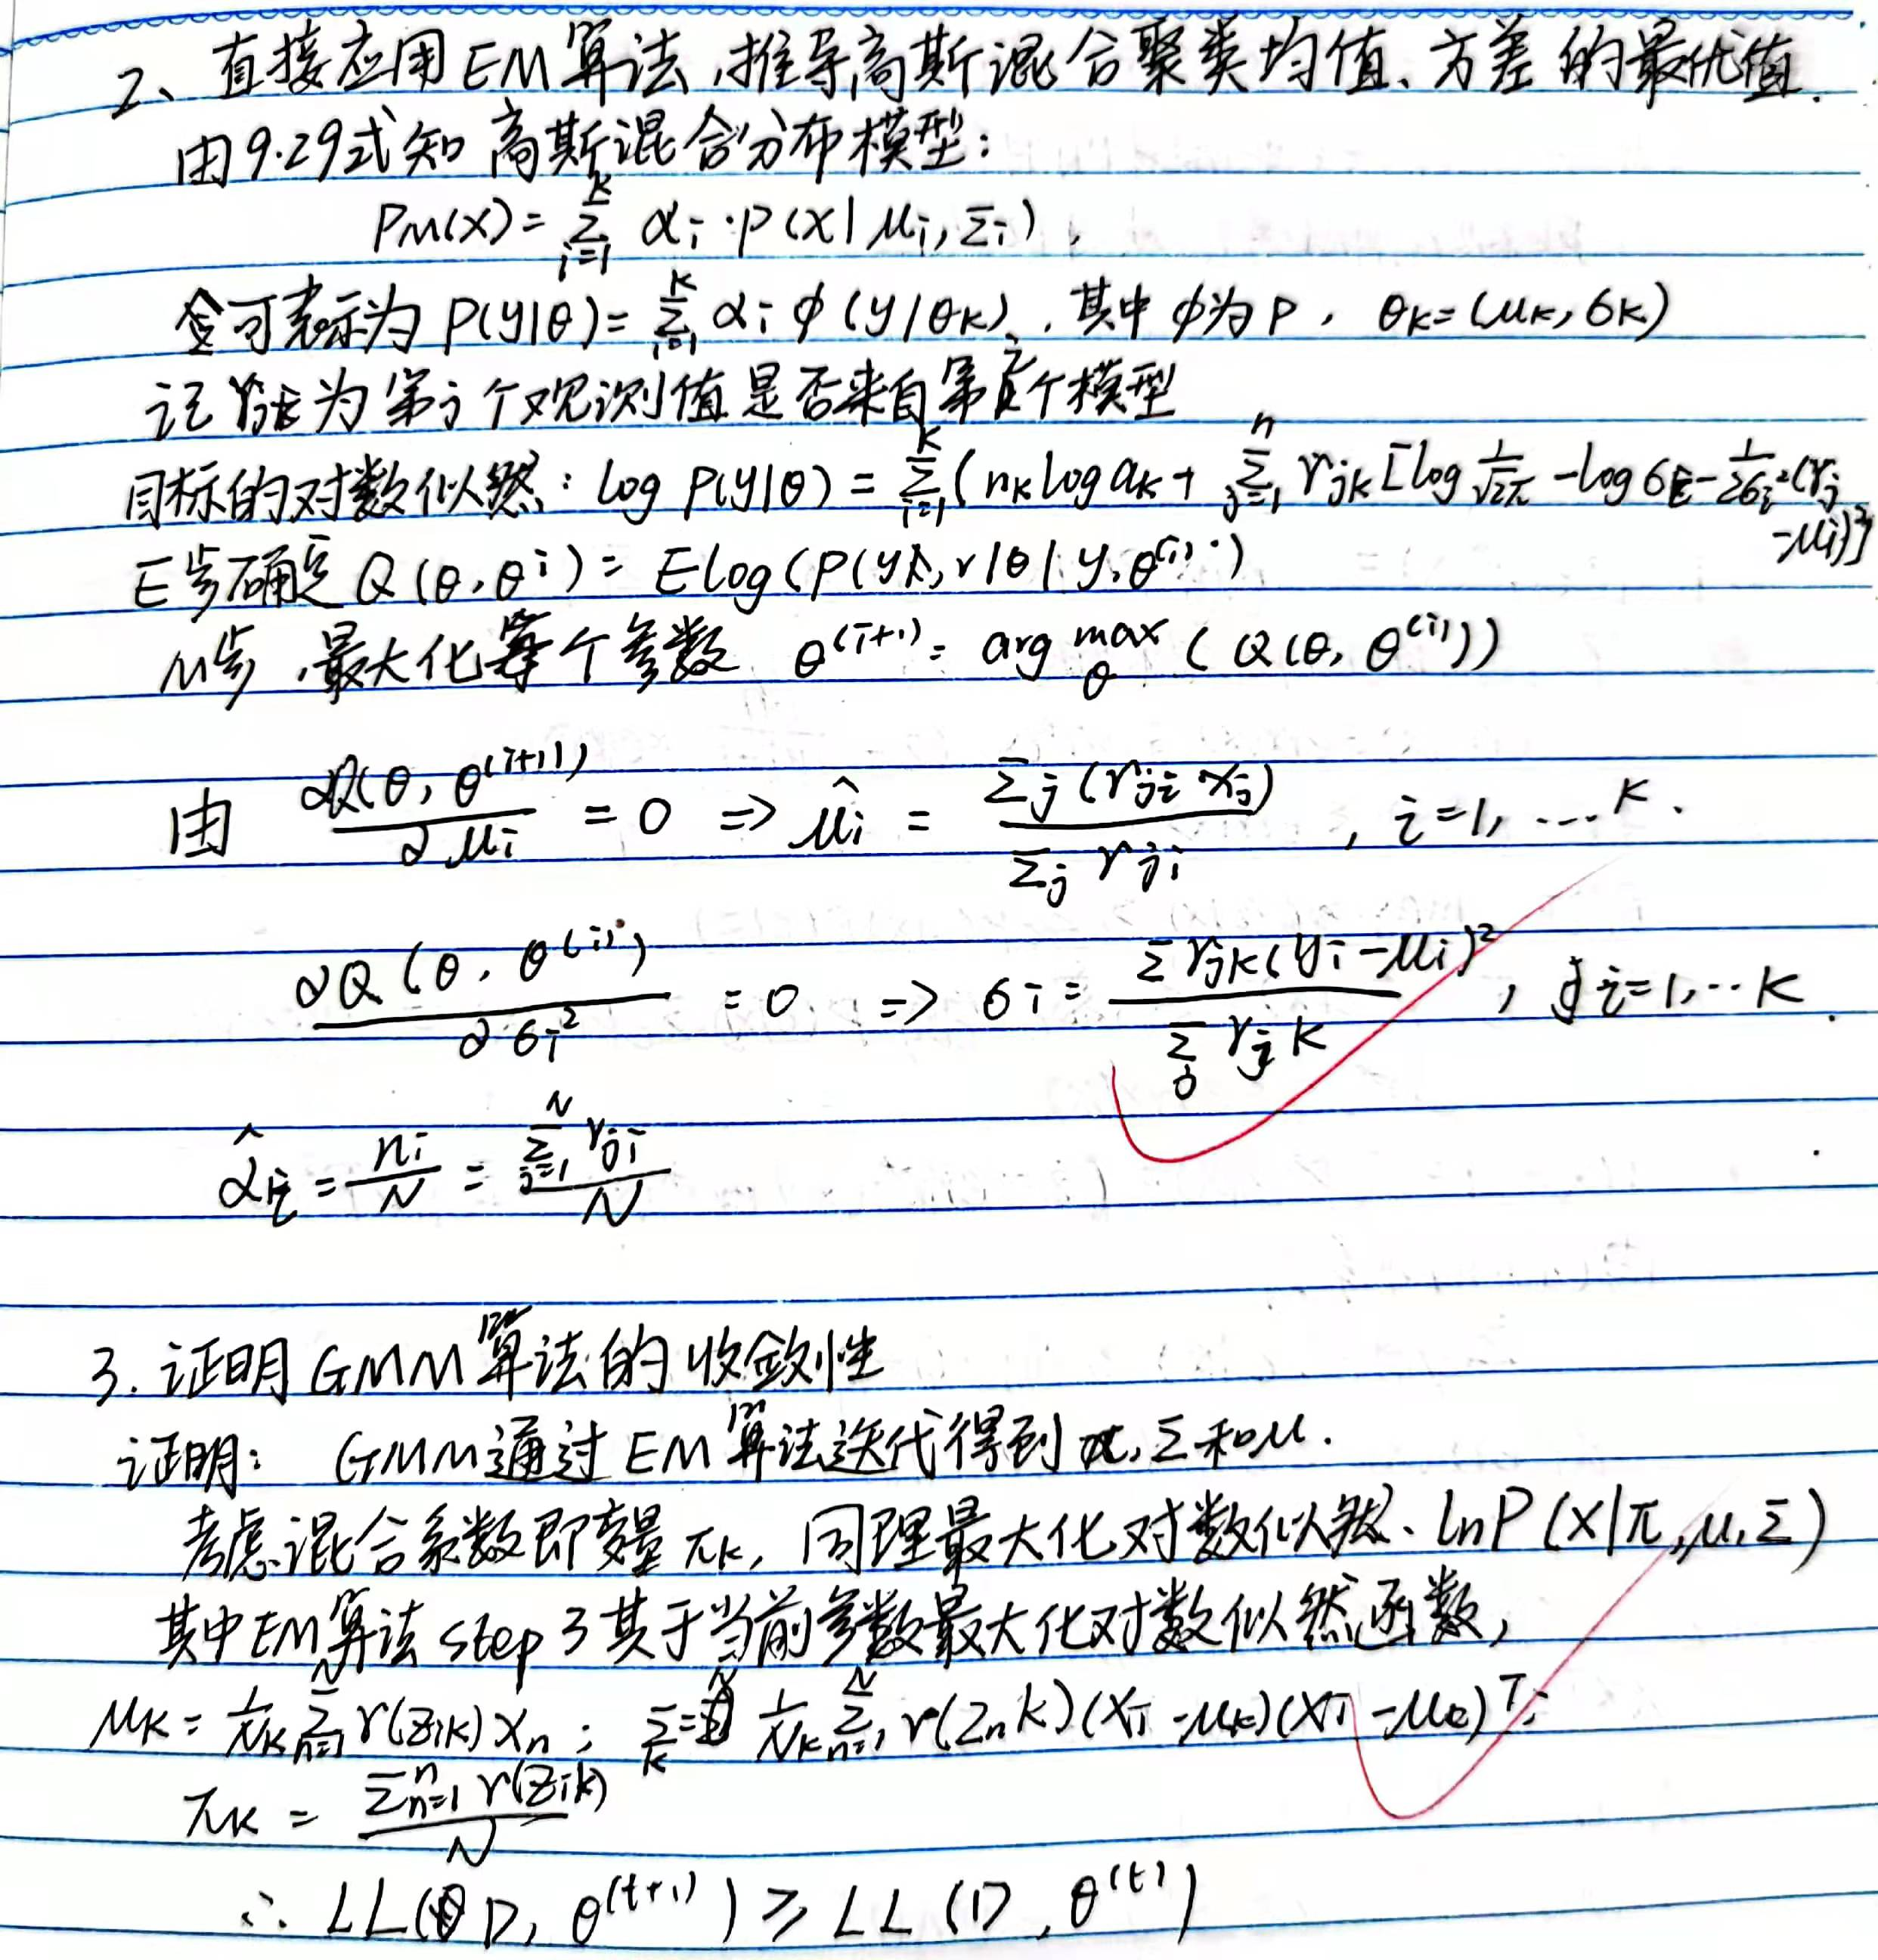 2、直接应用EM算法,推导高斯混合聚类均值、方差的最优值.
由9.29式知 高斯混合分布模型:
PM(X)= Σ_{i=1}^{k} αi·P(X|μi,Σi),
可表示为 P(y|θ)= Σ_{i=1}^{k} αi φ(y|θk),其中φ为P, θk=(μk,6k)
记 为第j个观测值是否来自第i个模型
目标的对数似然:log P(y|θ)= Σ_{i=1}^{k}(nk log ak + Σ_{j=1}^{n} γjk[log 1/√2π -log 6 - 1/26i²(γj
-μi)²]
E步确定 Q(θ,θ^i)= E log(P(y,γ|θ|y,θ^(i))
M步,最大化每个参数 θ^(i+1)= arg max_θ (Q(θ,θ^(i)))
由 ∂Q(θ,θ^(i+1))/∂μi = 0 => μ̂i = Σj(γji·xj)/Σj γji , i=1,...k.
∂Q(θ,θ^(i))/∂6i² = 0 => 6i = Σγjk(yi-μi)²/Σ_j γjk , i=1,…k.
α̂i = ni/N = Σ_{j=1}^{N} γji/N
3. 证明GMM算法的收敛性
证明: GMM通过EM算法迭代得到α,Σ和μ.
考虑混合系数即变量πk,同理最大化对数似然、lnP(X|π,μ,Σ)
其中EM算法step 3其于当前参数最大化对数似然函数,
μk= 1/Nk Σ_{n=1}^{N} γ(zik)xn; Σ_k= 1/Nk Σ_{n=1}^{N} γ(znk)(xi-μk)(xi-μk)^T;
πk = Σ_{n=1}^{n} γ(zik)/N
∴ LL(D,θ^(t+1)) ≥ LL(D,θ^(t))